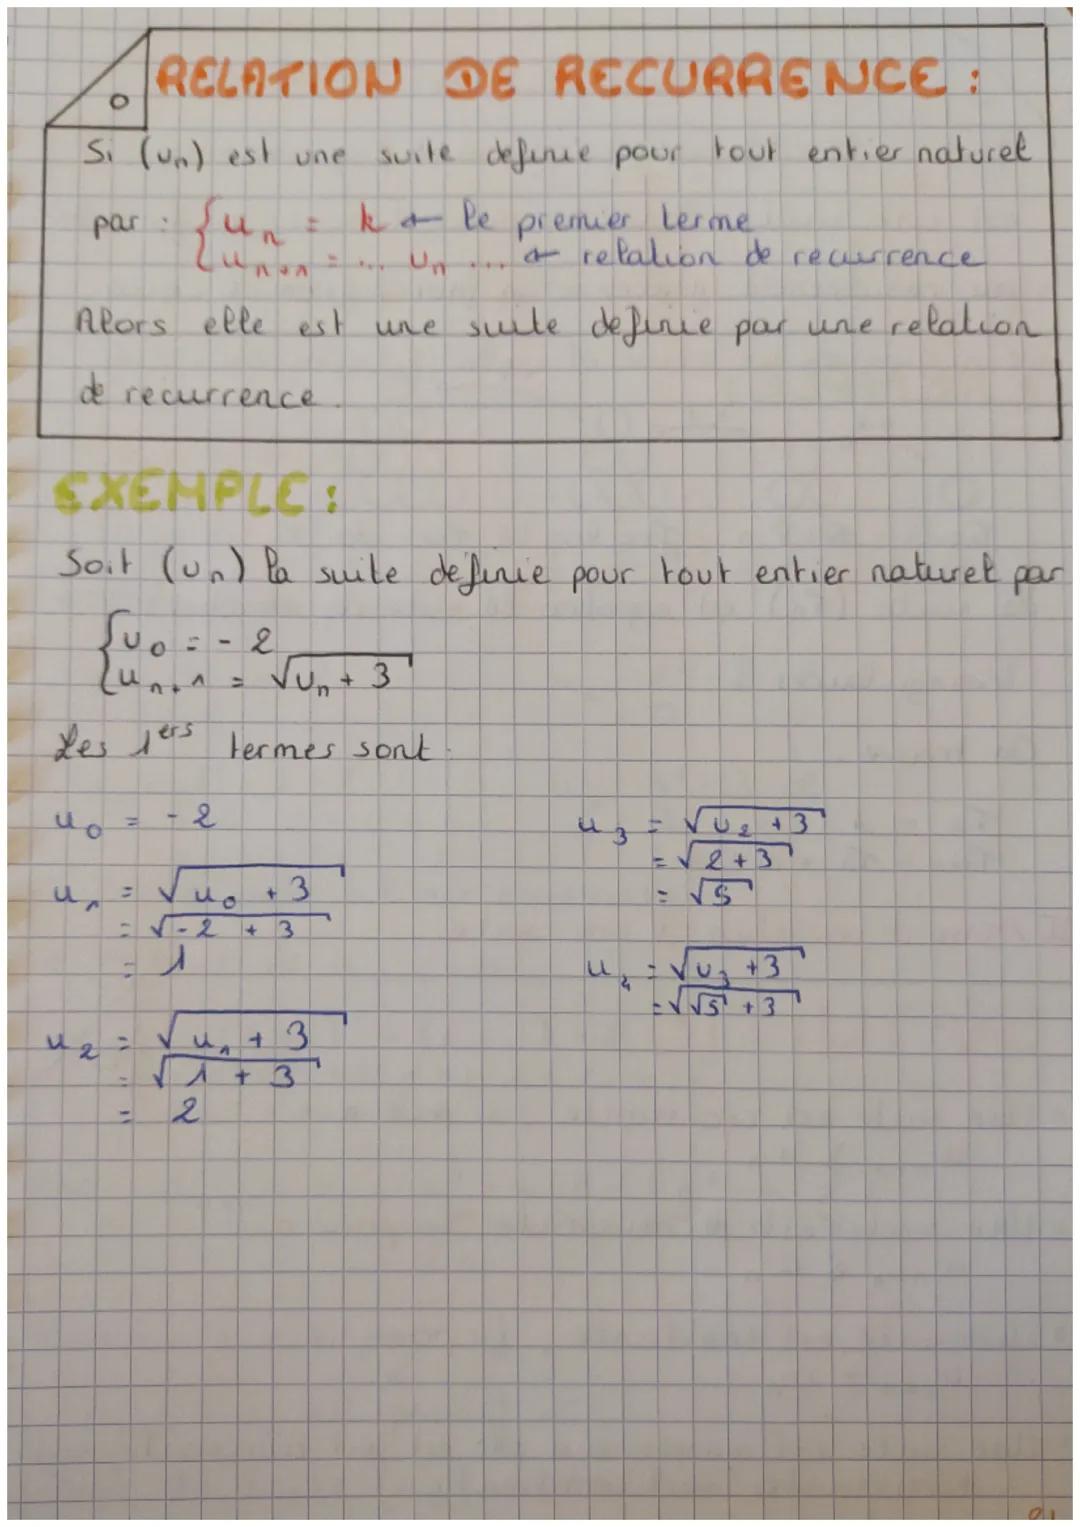 RELATION DE RECURRENCE :
Si (un) est une suite definie pour tout entier naturel
par : { un = k ← le premier terme
un+1 = ... un ... ← relation de recurrence
Alors elle est une suite definie par une relation
de recurrence.
EXEMPLE :
Soit (un) la suite définie pour tout entier naturel par
{ u0 = - 2
un+1 = √(un + 3)
Les 1ers termes sont :
u0 = - 2
u1 = √(u0 + 3)
= √(-2 + 3)
= 1
u2 = √(u1 + 3)
= √(1 + 3)
= 2
u3 = √(u2 + 3)
= √(2 + 3)
= √5
u4 = √(u3 + 3)
= √(√5 + 3)